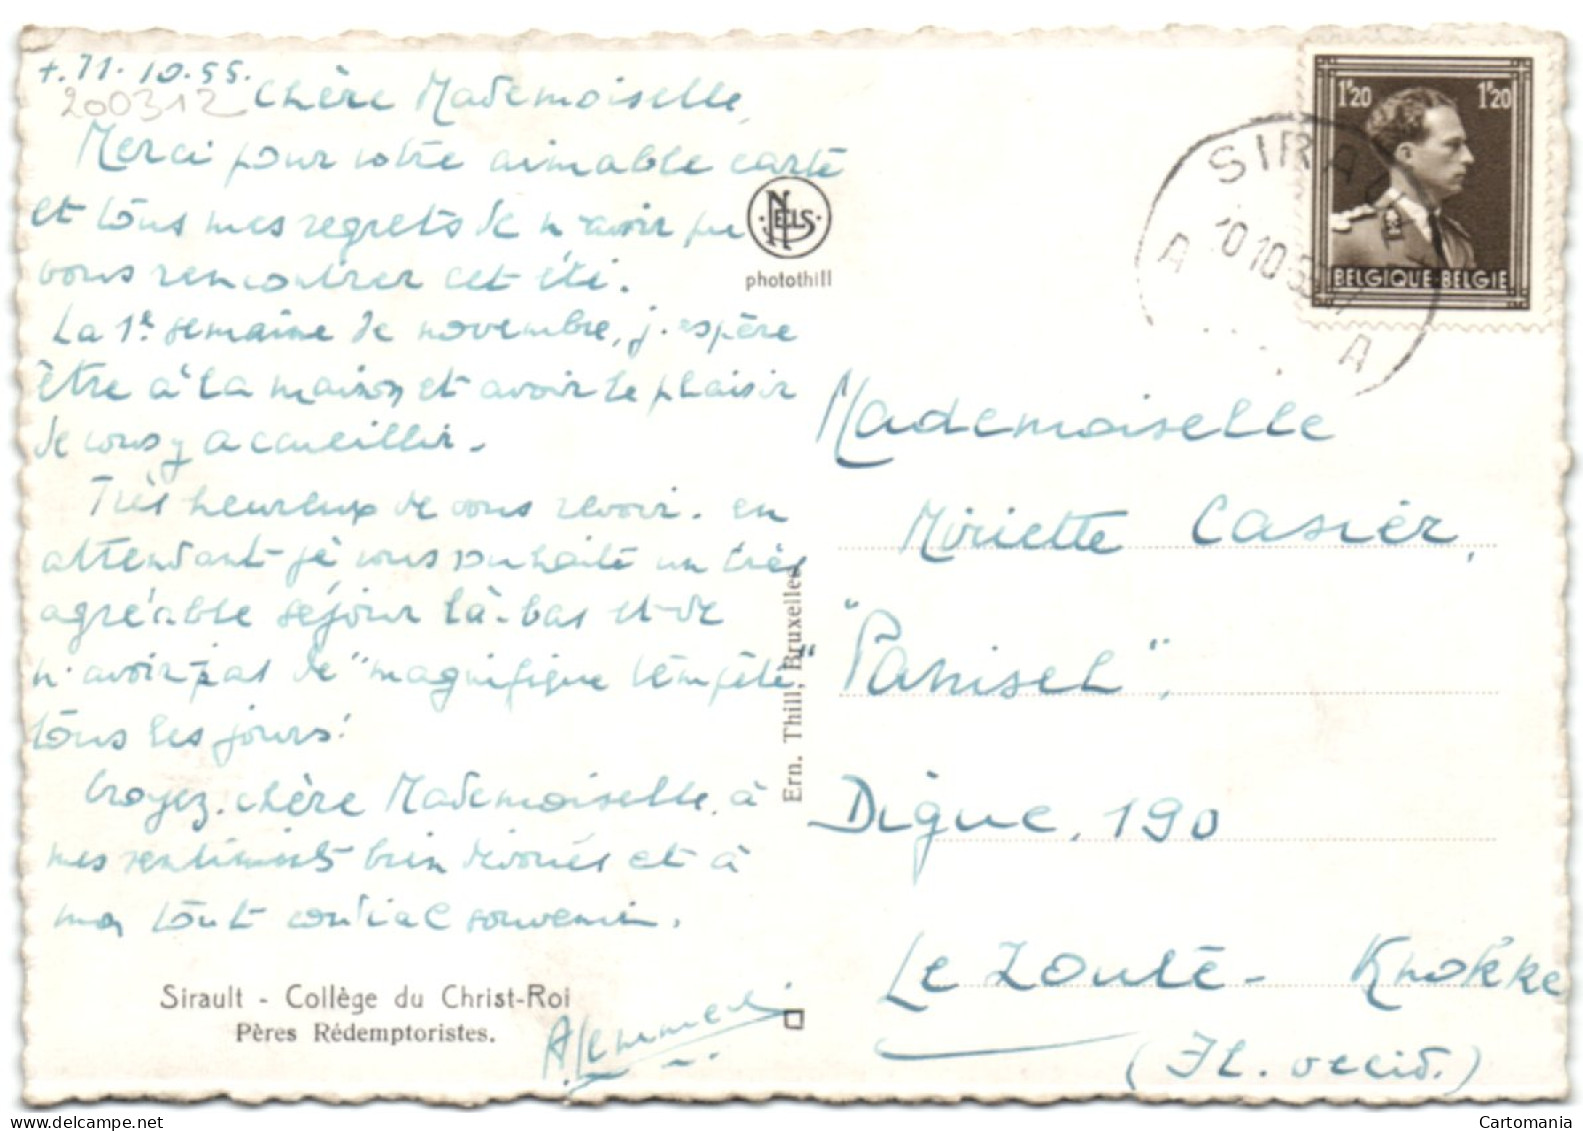 +. 11. 10. 55.
200312
Chère Mademoiselle,
Merci pour votre aimable carte
et tous mes regrets de n'avoir pu
vous rencontrer cet été.
La 1e semaine de novembre, j'espère
être à la maison et avoir le plaisir
de vous y accueillir.
Très heureux de vous revoir. en
attendant je vous souhaite un très
agréable séjour là-bas et de
n'avoir pas de "magnifique tempête"
tous les jours!
Croyez, chère Mademoiselle, à
mes sentiments bien dévoués et à
mon tout cordial souvenir.
Sirault - Collège du Christ-Roi
Pères Rédemptoristes.
NELS
photothill
Ern. Thill, Bruxelles
SIRAULT
A 10 10 5 A
1F20 1F20
BELGIQUE·BELGIE
Mademoiselle
Miriette Casier,
"Panisel",
Digue, 190
Le Zoute - Knokke
(Fl. occid.)
Cartomania